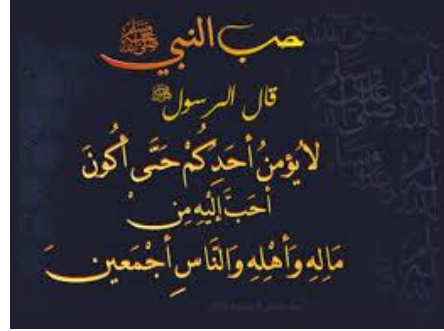 حب النبي ﷺ
قال الرسول ﷺ
لا يُؤمنُ أحَدِكُمْ حَتَّى أكُونَ
أحَبَّ إِلَيْهِ مِنْ
مَالِهِ وَأهْلِهِ وَالنَّاسِ أجْمَعين